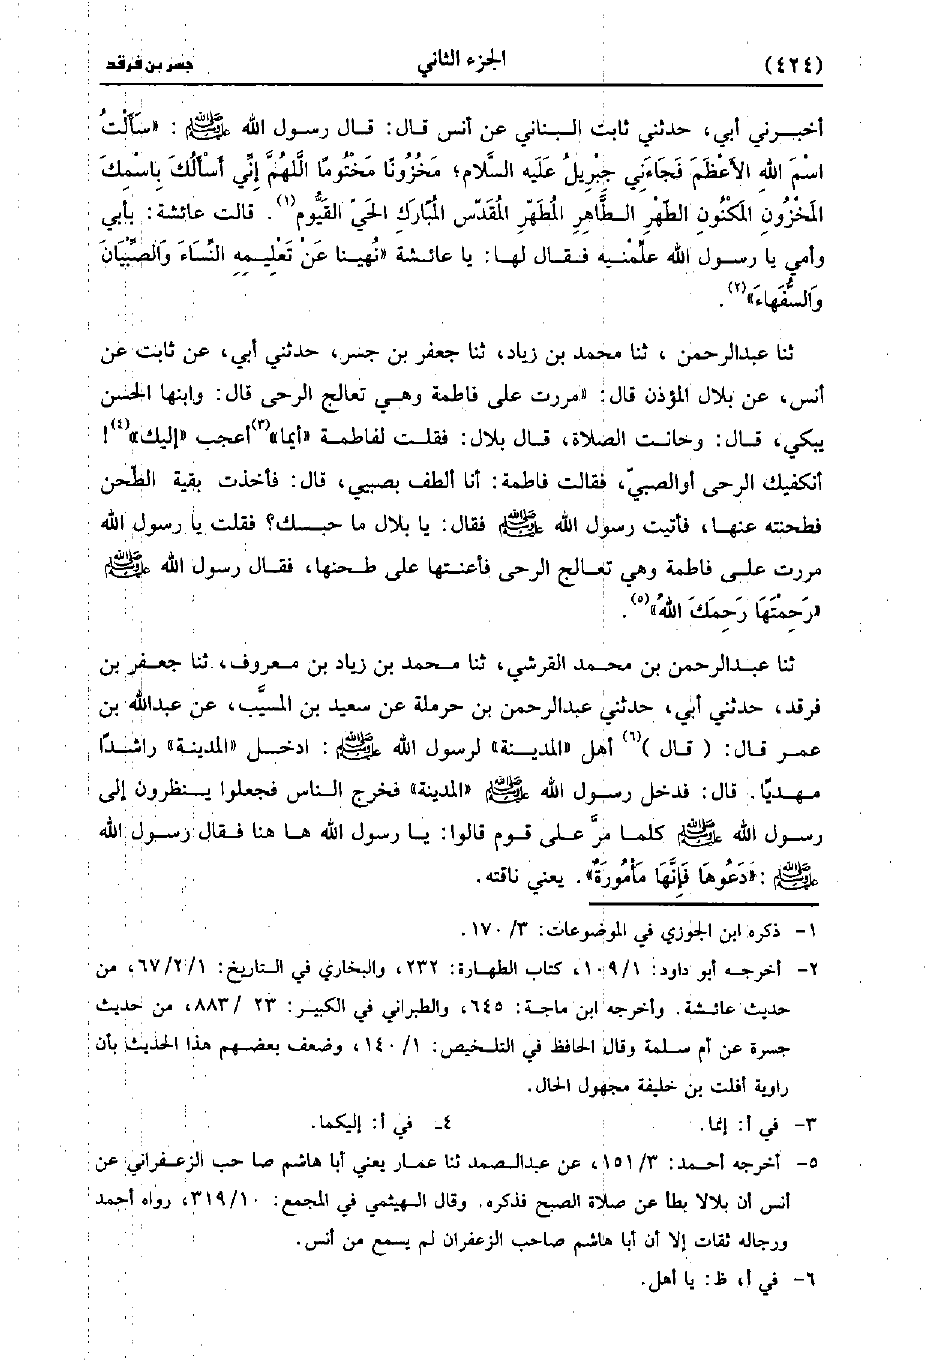 (٤٢٤) الجزء الثاني جسر بن فرقد
أخبرني أبي، حدثني ثابت البناني عن أنس قال: قال رسول الله ﷺ : «سَأَلْتُ
اسْمَ اللهِ الأَعْظَمَ فَجَاءَنِي جِبْرِيلُ عَلَيهِ السَّلَام؛ مَخْزُونًا مَخْتُومًا اللَّهُمَّ إِنِّي أَسْأَلُكَ بِاسْمِكَ
المَخْزُونِ المَكْنُونِ الطُّهْرِ الطَّاهِرِ المُطَهَّرِ المُقَدَّسِ المُبَارَكِ الحَيِّ القَيُّومِ(١). قالت عائشة: بأبي
وأمي يا رسول الله علمْنيه فقال لها: يا عائشة «نُهِينَا عَنْ تَعْلِيمِهِ النِّسَاءَ وَالصِّبْيَانَ
وَالسُّفَهَاءَ»(٢).
ثنا عبدالرحمن ، ثنا محمد بن زياد، ثنا جعفر بن جسر، حدثني أبي، عن ثابت عن
أنس، عن بلال المؤذن قال: «مررت على فاطمة وهي تعالج الرحى قال: وابنها الحسن
يبكي، قال: وحانت الصلاة، قال بلال: فقلت لفاطمة «أيما»(٣)أعجب «إليك»(٤)!
أنكفيك الرحى أوالصبيّ، فقالت فاطمة: أنا ألطف بصبيي، قال: فأخذت بقية الطحن
فطحنته عنها، فأتيت رسول الله ﷺ فقال: يا بلال ما حبسك؟ فقلت يا رسول الله
مررت على فاطمة وهي تعالج الرحى فأعنتها على طحنها، فقال رسول الله ﷺ
«رَحِمْتَهَا رَحِمَكَ اللهُ»(٥).
ثنا عبدالرحمن بن محمد القرشي، ثنا محمد بن زياد بن معروف، ثنا جعفر بن
فرقد، حدثني أبي، حدثني عبدالرحمن بن حرملة عن سعيد بن المسيَّب، عن عبدالله بن
عمر قال: ( قال )(٦) أهل «المدينة» لرسول الله ﷺ : ادخل «المدينة» راشدًا
مهديًّا. قال: فدخل رسول الله ﷺ «المدينة» فخرج الناس فجعلوا ينظرون إلى
رسول الله ﷺ كلما مرَّ على قوم قالوا: يا رسول الله ها هنا فقال رسول الله
ﷺ :«دَعُوهَا فَإِنَّهَا مَأْمُورَةٌ». يعني ناقته.
١- ذكره ابن الجوزي في الموضوعات: ٣/ ١٧٠.
٢- أخرجه أبو داود: ١/ ١٠٩، كتاب الطهارة: ٢٣٢، والبخاري في التاريخ: ١/ ٢/ ٦٧، من
حديث عائشة. وأخرجه ابن ماجة: ٦٤٥، والطبراني في الكبير: ٢٣ /٨٨٣، من حديث
جسرة عن أم سلمة وقال الحافظ في التلخيص: ١/ ١٤٠، وضعف بعضهم هذا الحديث بأن
راوية أفلت بن خليفة مجهول الحال.
٣- في أ: إنما. ٤- في أ: إليكما.
٥- أخرجه أحمد: ٣/ ١٥١، عن عبدالصمد ثنا عمار يعني أبا هاشم صا حب الزعفراني عن
أنس أن بلالا بطأ عن صلاة الصبح فذكره. وقال الهيثمي في المجمع: ١٠/ ٣١٩، رواه أحمد
ورجاله ثقات إلا أن أبا هاشم صاحب الزعفران لم يسمع من أنس.
٦- في أ، ظ: يا أهل.